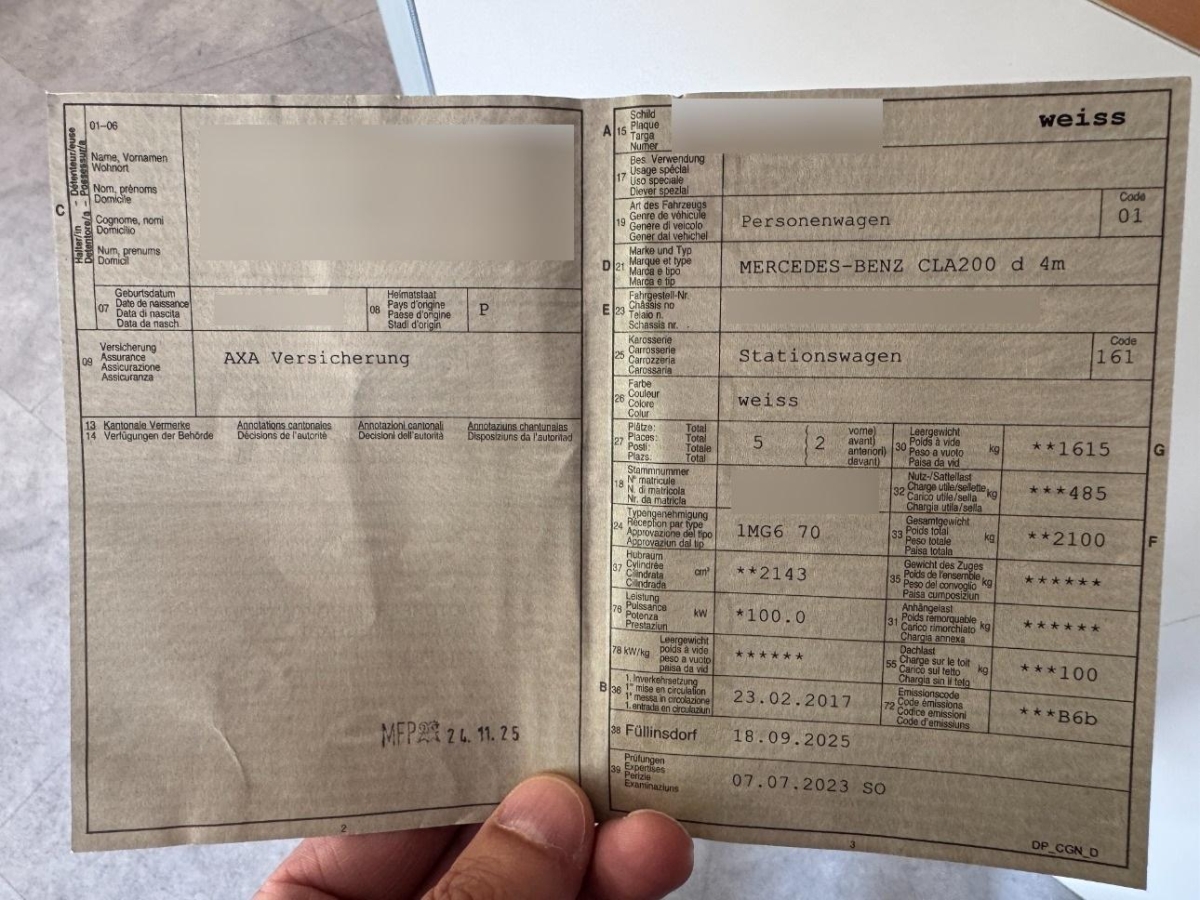 C
Halter/in - Détenteur/euse
Detentore/a - Possessur/a
01-06
Name, Vornamen
Wohnort
Nom, prénoms
Domicile
Cognome, nomi
Domicilio
Num, prenums
Domicil
07
Geburtsdatum
Date de naissance
Data di nascita
Data da nasch.
08
Heimatstaat
Pays d'origine
Paese d'origine
Stadi d'origin
P
09
Versicherung
Assurance
Assicurazione
Assicuranza
AXA Versicherung
13 Kantonale Vermerke Annotations cantonales Annotazioni cantonali Annotaziuns chantunalas
14 Verfügungen der Behörde Décisions de l'autorité Decisioni dell'autorità Disposiziuns da l'autoritad
MFP 24.11.25
2
A 15
Schild
Plaque
Targa
Numer
weiss
17
Bes. Verwendung
Usage spécial
Uso speciale
Diever spezial
19
Art des Fahrzeugs
Genre de véhicule
Genere di veicolo
Gener dal vehichel
Personenwagen
Code
01
D 21
Marke und Typ
Marque et type
Marca e tipo
Marca e tip
MERCEDES-BENZ CLA200 d 4m
E 23
Fahrgestell-Nr.
Châssis no
Telaio n.
Schassis nr.
25
Karosserie
Carrosserie
Carrozzeria
Carossaria
Stationswagen
Code
161
26
Farbe
Couleur
Colore
Colur
weiss
27
Plätze: Total
Places: Total
Posti: Totale
Plazs: Total
5
2
vorne)
avant)
anteriori)
davant)
30
Leergewicht
Poids à vide
Peso a vuoto
Paisa da vid
kg
**1615
G
18
Stammnummer
N° matricule
N. di matricola
Nr. da matricla
32
Nutz-/Sattellast
Charge utile/sellette
Carico utile/sella
Chargia utila/sella
kg
***485
24
Typengenehmigung
Réception par type
Approvazione del tipo
Approvaziun dal tip
1MG6 70
33
Gesamtgewicht
Poids total
Peso totale
Paisa totala
kg
**2100
F
37
Hubraum
Cylindrée
Cilindrata
Cilindrada
cm³
**2143
35
Gewicht des Zuges
Poids de l'ensemble
Peso del convoglio
Paisa cumposiziun
kg
******
76
Leistung
Puissance
Potenza
Prestaziun
kW
*100.0
31
Anhängelast
Poids remorquable
Carico rimorchiato
Chargia annexa
kg
******
78 kW/kg
Leergewicht
poids à vide
peso a vuoto
paisa da vid
******
55
Dachlast
Charge sur le toit
Carico sul tetto
Chargia sin il tetg
kg
***100
B 36
1. Inverkehrsetzung
1re mise en circulation
1a messa in circolazione
1. entrada en circulaziun
23.02.2017
72
Emissionscode
Code émissions
Codice emissioni
Code d'emissiuns
***B6b
38 Füllinsdorf 18.09.2025
39
Prüfungen
Expertises
Perizie
Examinaziuns
07.07.2023 SO
3
DP_CGN_D